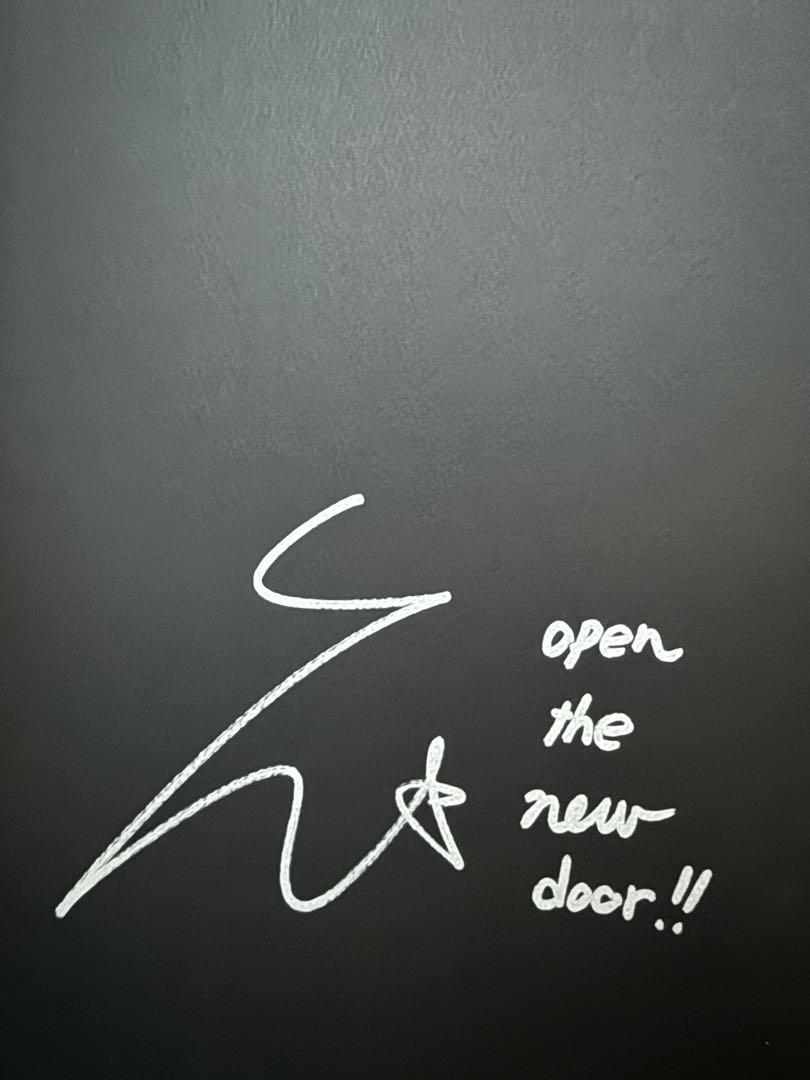 open
the
new
door!!